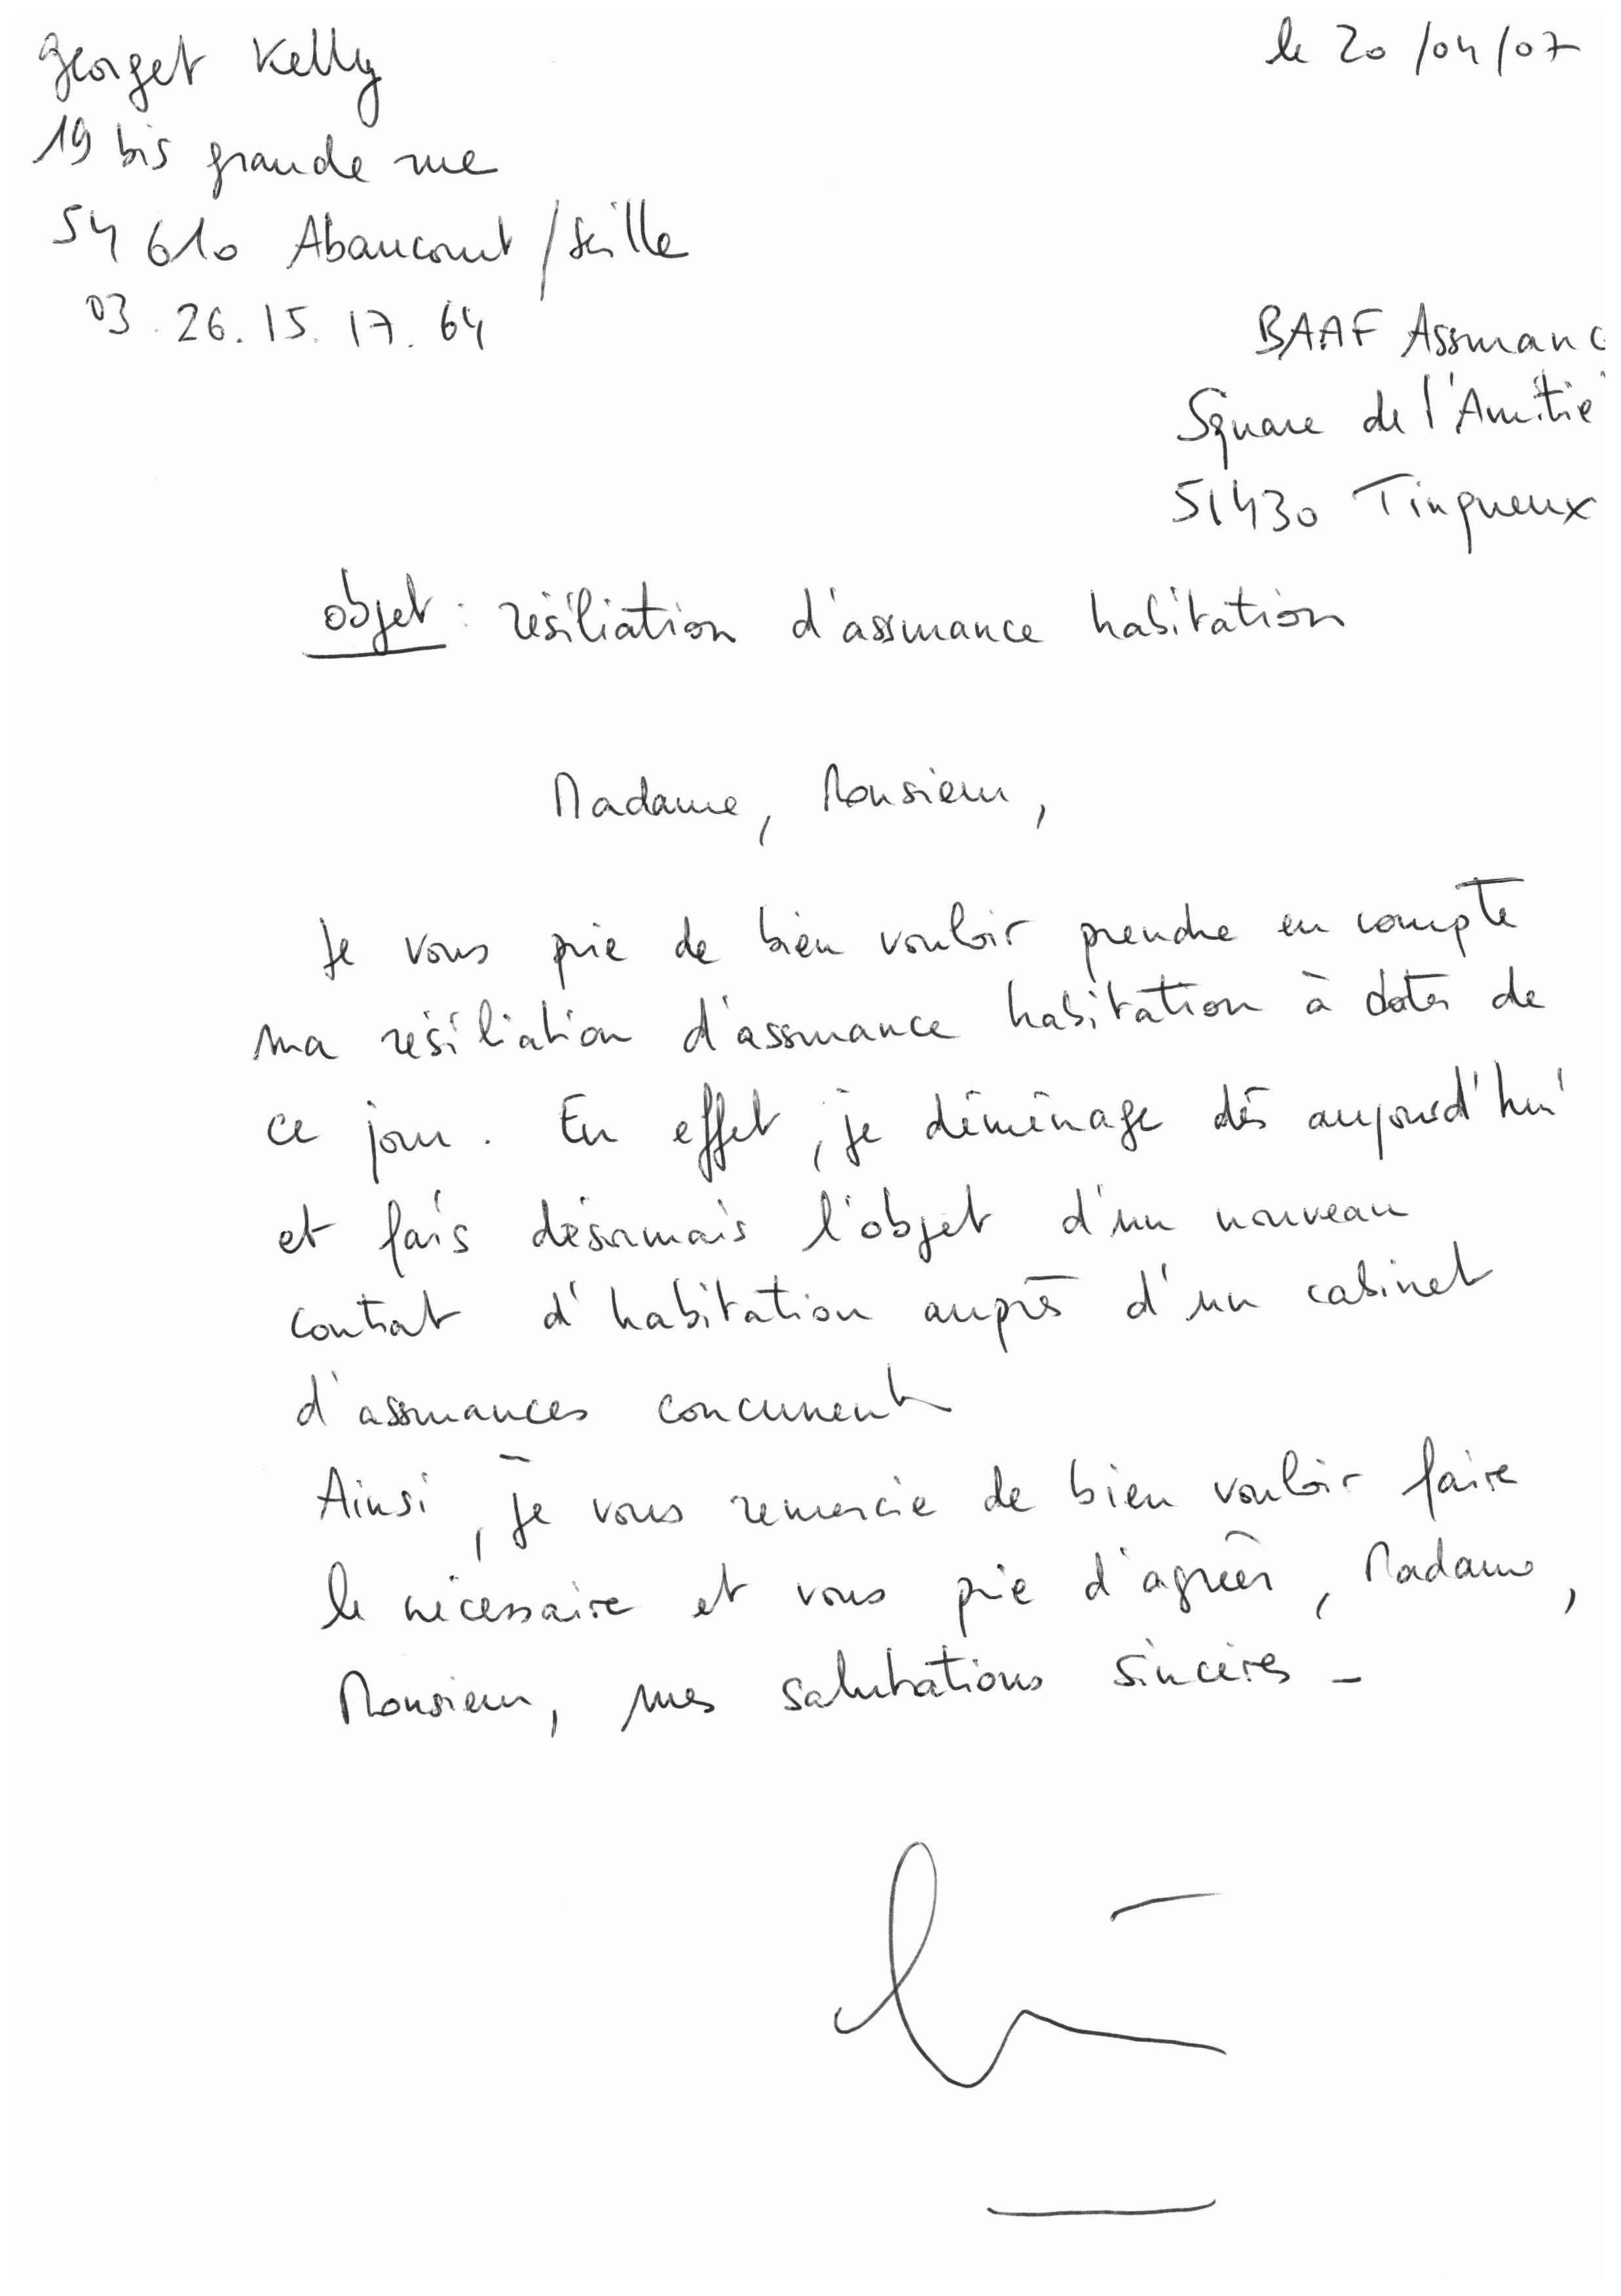 Georget Kelly
le 20/04/07
19 bis grande rue
54 610 Abaucourt/Seille
03.26.15.17.64
BAAF Assuranc
Square de l'Amitié
51430 Tinqueux
objet : résiliation d'assurance habitation
Madame, Monsieur,
Je vous prie de bien vouloir prendre en compte
ma résiliation d'assurance habitation à dater de
ce jour. En effet, je déménage dès aujourd'hui
et fais désormais l'objet d'un nouveau
contrat d'habitation auprès d'un cabinet
d'assurances concurrent
Ainsi, je vous remercie de bien vouloir faire
le nécessaire et vous prie d'agréer, Madame,
Monsieur, mes salutations sincères -